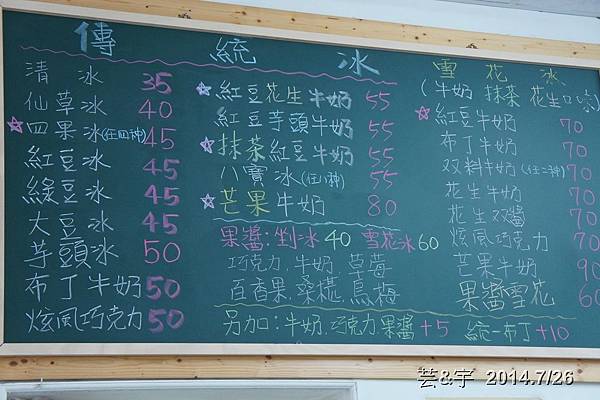 傳統冰
清冰 35
仙草冰 40
四果冰(任四种) 45
紅豆冰 45
綠豆冰 45
大豆冰 45
芋頭冰 50
布丁牛奶 50
炫風巧克力 50
紅豆花生牛奶 55
紅豆芋頭牛奶 55
抹茶紅豆牛奶 55
八寶冰(任八种) 55
芒果牛奶 80
果醬:剉冰40 雪花冰60
巧克力.牛奶.草莓
百香果.桑椹.烏梅
另加:牛奶.巧克力果醬+5 統一布丁+10
雪花冰
(牛奶 抹茶 花生口
紅豆牛奶 70
布丁牛奶 70
双料牛奶(任二种) 70
花生牛奶 70
花生双醬 70
炫風巧克力 70
芒果牛奶 90
果醬雪花 60
芸&宇 2014.7/26